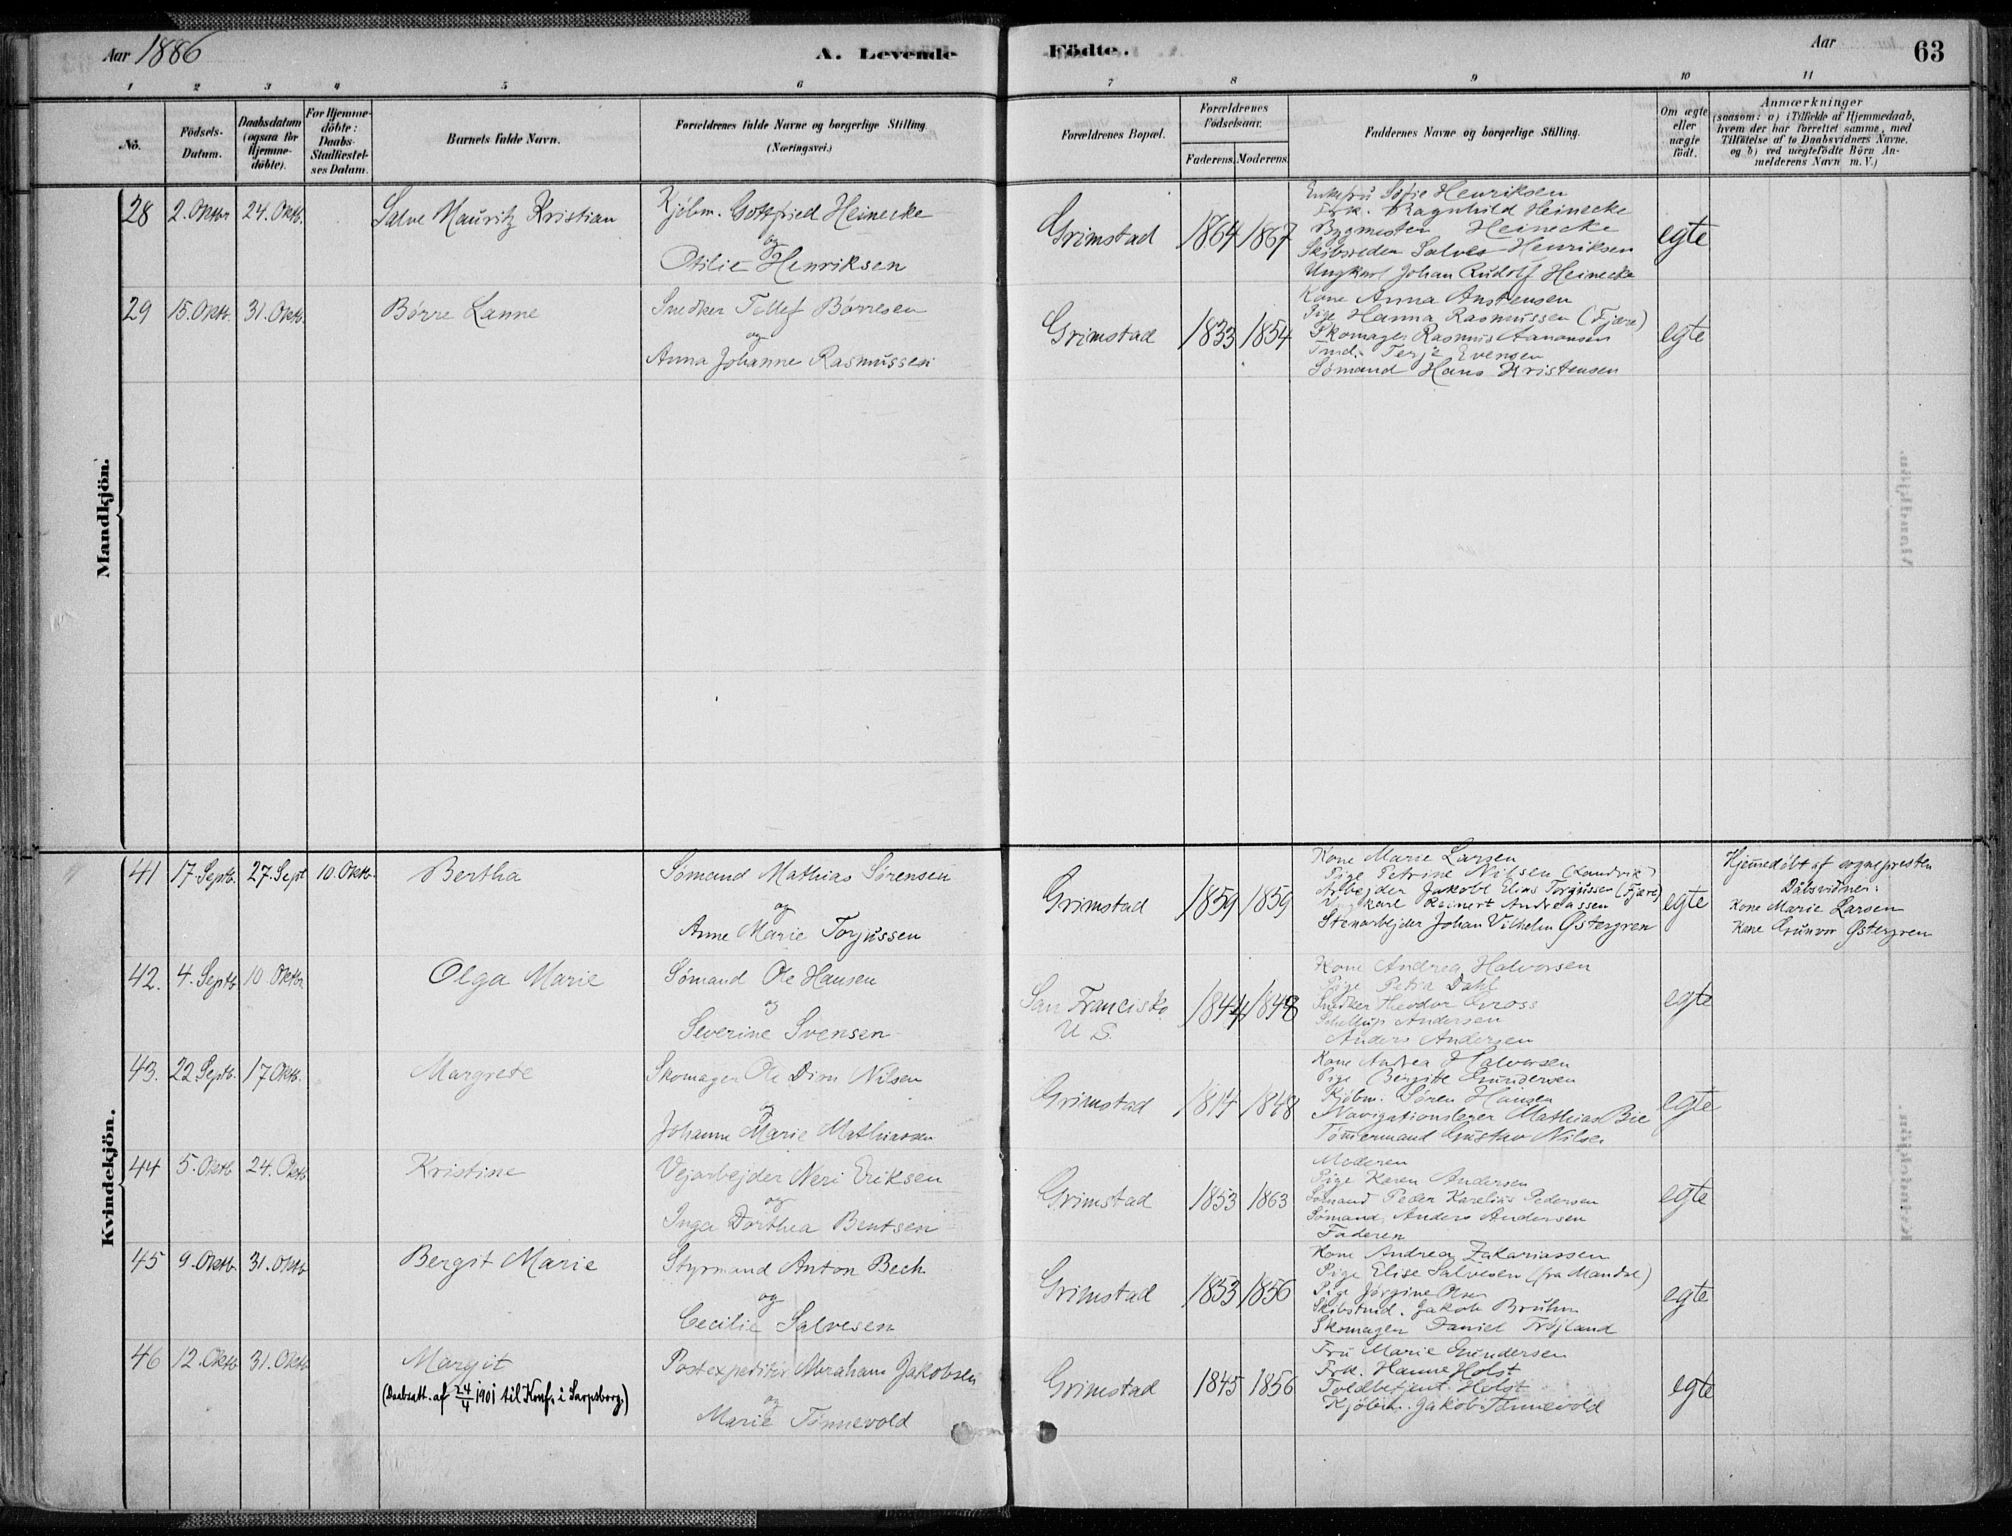 Aar 1886 A. Levende Födte. Aar 63
1 2 3 4 5 6 7 8 9 10 11
No.
Födsels-Datum.
Daabsdatum (ogsaa for Hjemme-döbte).
For Hjemme-döbte: Daabs-Stadfæstel-ses Datum.
Barnets fulde Navn.
Forældrenes fulde Navne og borgerlige Stilling (Næringsvei.)
Forældrenes Bopæl.
Forældrenes Födselsaar.
Faderens. Moderens.
Faddernes Navne og borgerlige Stilling.
Om ægte eller uægte födt.
Anmærkninger
(saasom: a) i Tilfælde af Hjemmedaab,
hvem der har forrettet samme, med
Tilföielse af to Daabsvidners Navne,
og b) ved uægtefödte Börn An-
melderens Navn m. V.)
Mandkjön.
28 2. Oktbr 24. Oktb. Salve Mauritz Kristian
Kjöbm. Gottfried Heinecke
og
Otilie Henriksen
Grimstad 1864 1867
Enkefru Sofie Henriksen
Frk. Ragnhild Heinecke
Bygmester Heinecke
Skibsreder Salves Henriksen
Ungkarl Johan Rudolf Heinecke
egte
29 15. Oktb. 31. Oktb. Børre Lanne
Snedker Tellef Børresen
og
Anna Johanne Rasmussen
Grimstad 1833 1854
Kone Anna Anstensen
Pige Hanna Rasmussen (Fjære)
Skomager Rasmus Aanonsen
Tmd. Terje Evensen
Sømand Hans Kristensen
egte
Kvindekjön.
41 17. Septb. 27. Sept 10. Oktb. Bertha
Sømand Mathias Sørensen
og
Anne Marie Torjussen
Grimstad 1859 1859
Kone Marie Larsen
Pige Petrine Nilsen (Landvik)
Arbejder Jakob Elias Torjussen (Fjære)
Ungkarl Reinert Andreassen
Stenarbejder Johan Vilhelm Østergren
egte
Hjemedøbt af sognepresten
Dåbsvidner:
Kone Marie Larsen
Kone Gunvor Østergren
42. 4. Septb 10. Oktbr Olga Marie
Sømand Ole Hansen
og
Severine Svensen
San Francisko
U. S.
1844 1848
Kone Andrea Halvorsen
Pige Petra Dahl
Snedker Theodor Gross
Andersen
Anders Andersen
egte
43. 22. Septb. 17 Oktb. Margrete
Skomager Ole Dirn Nilsen
og
Johanne Marie Mathiassen
Grimstad 1848
Kone Andrea Halvorsen
Pige Bergitte Gundersen
Kjöbm. Søren Hansen
Navigationslerer Mathias Bie
Tømermand Gustav Nilsen
egte
44 5. Oktb 24. Oktb Kristine
Vejarbejder Neri Eriksen
og
Inga Dorthea Bentsen
Grimstad 1853 1863
Moderen
Pige Karen Andersen
Sømand Peder Karelius Pedersen
Sømand Anders Andersen
Faderen
egte
45 9. Oktb. 31. Oktb Bergit Marie
Styrmand Anton Bech
og
Cecilie Salvesen
Grimstad 1853 1856
Kone Andrea Zakariassen
Pige Elise Salvesen (fra Mandal)
Pige Jørgine Olsen
Skibstmd. Jakob Bruhn
Skomager Daniel Trøjland
egte
46 12. Oktb 31. Oktb Margit
(Daabsatt. af 24/4 1901 til Konf. i Sarpsborg.)
Postexpeditör Abraham Jakobsen
og
Marie Tønnevold
Grimstad 1845 1856
Fru Marie Gundersen
Frk. Hanne Holst
Toldbetjent Holst
Kjöbm. Jakob Tønnevold
egte